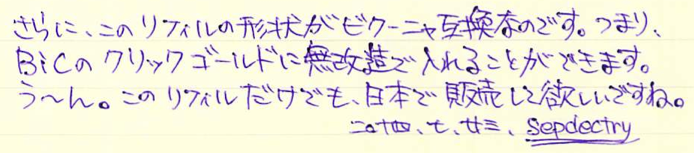 さらに、このリフィルの形状がビクーニャ互換なのです。つまり、
BiCのクリックゴールドに無改造で入れることができます。
う〜ん。このリフィルだけでも、日本で販売して欲しいですね。
二〇十四、七、廿三、Sepdectry